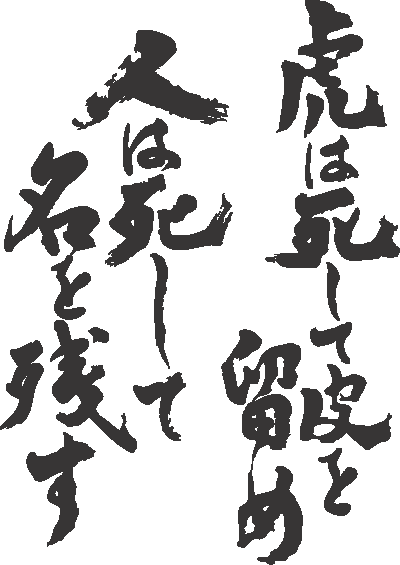 虎は死して皮を
留め
人は死して
名を残す